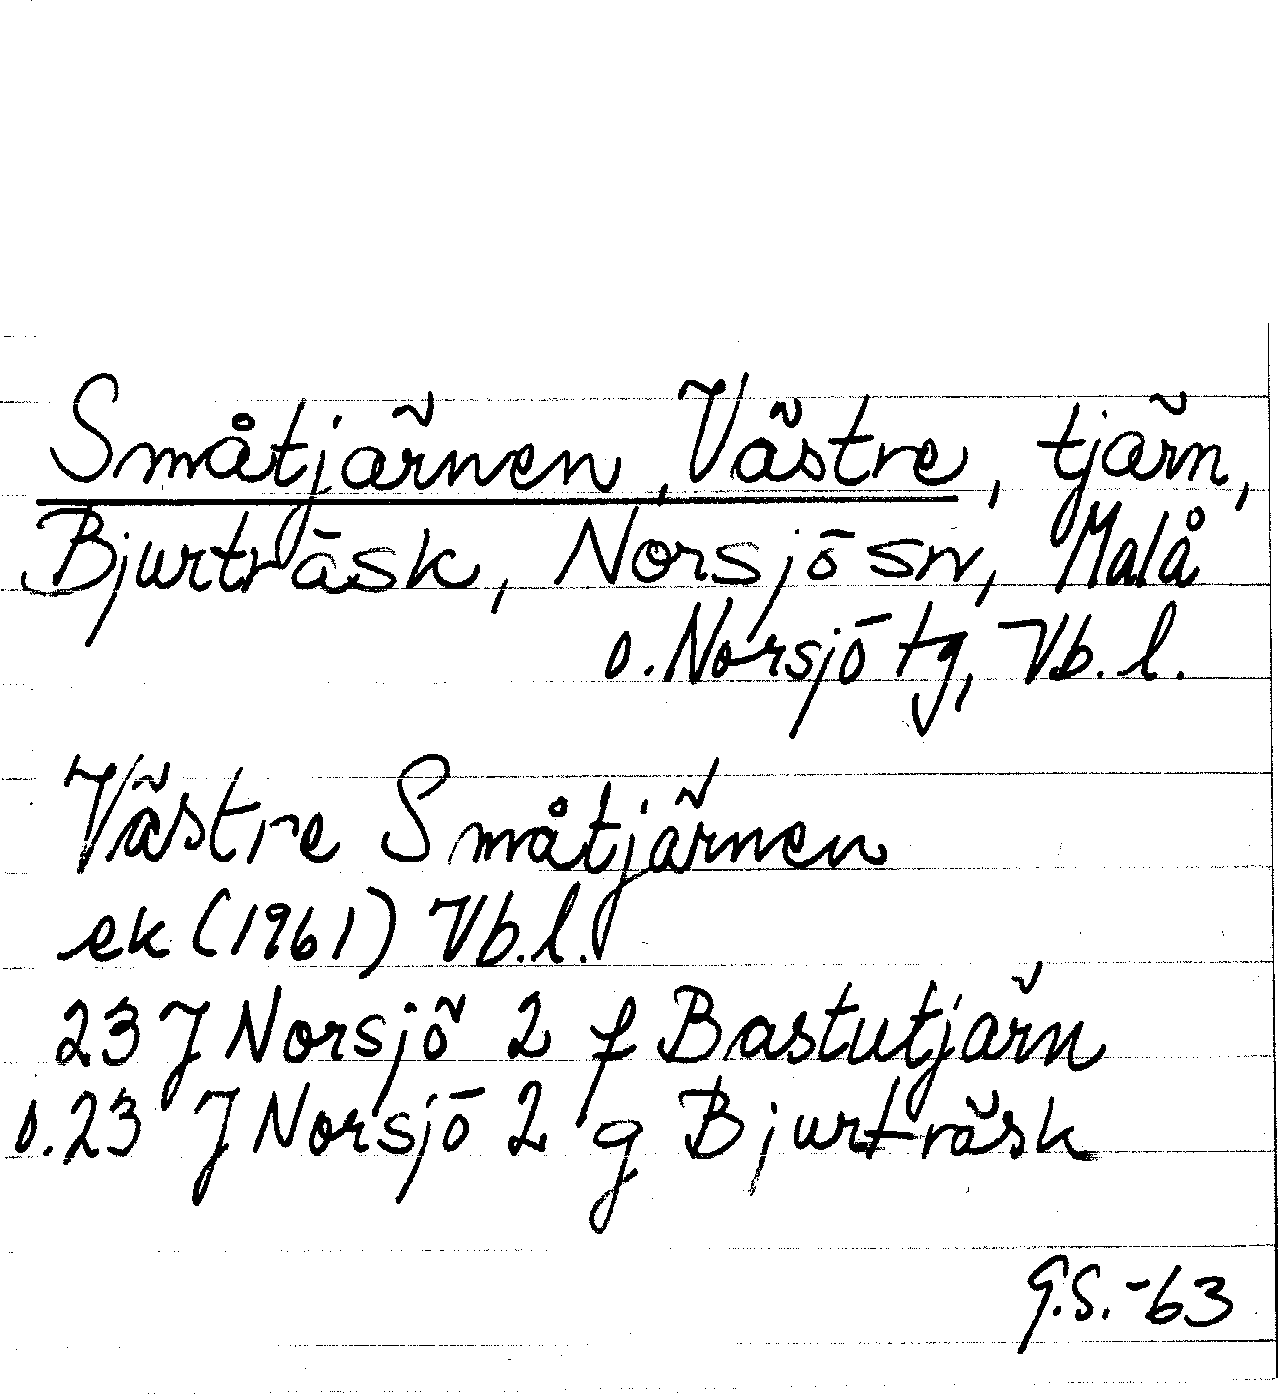 Småtjärnen, Västre, tjärn,
Bjurträsk, Norsjö sn, Malå
o. Norsjö tg, Vb. l.
Västre Småtjärnen
ek (1961) Vb. l.
23 J Norsjö 2 f Bastutjärn
o. 23 J Norsjö 2 g Bjurträsk
G.S. -63